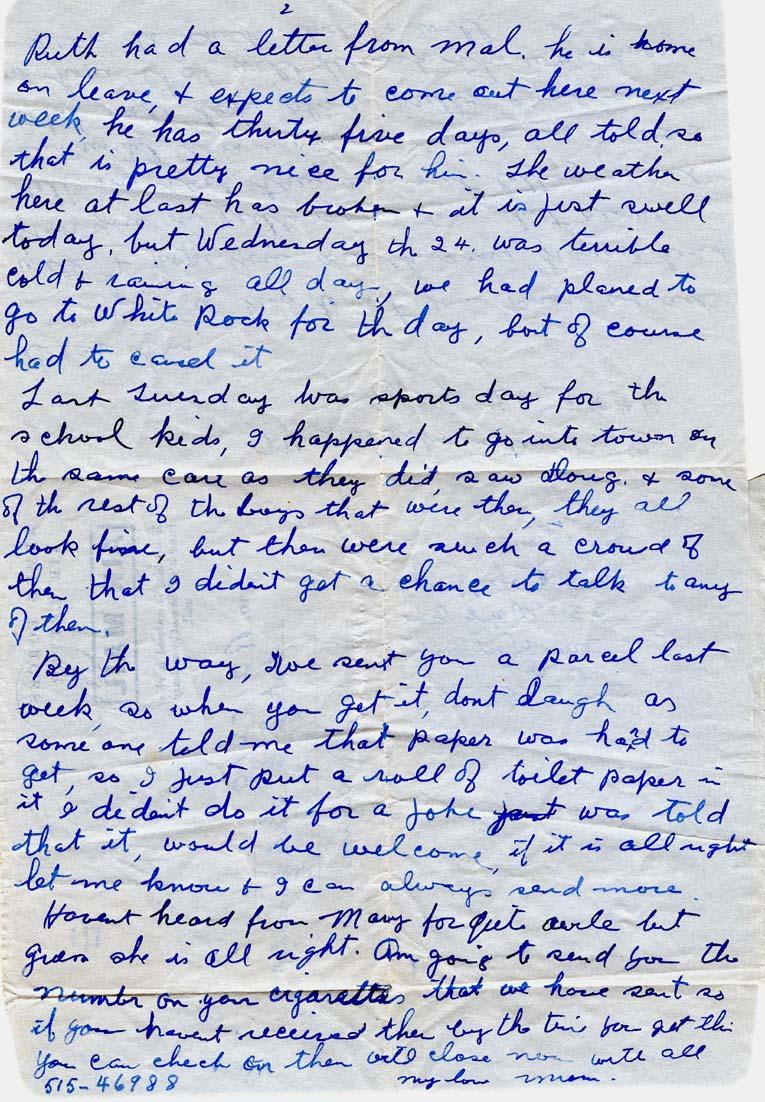 2
Ruth had a letter from Mal. he is home
on leave, & expects to come out here next
week, he has thirty five days, all told, so
that is pretty nice for him. The weather
here at last has broken & it is just swell
today, but Wednesday th 24. was terrible
cold & raining all day, we had planed to
go to White Rock for th day, but of course
had to cancel it
Last Tuesday was sports day for th
school kids, I happened to go into town on
th same care as they did, saw Doug. & some
of th rest of th boys that were then, they all
look fine, but then were such a crowd of
then that I dident get a chance to talk to any
of them.
By th way, I've sent you a parcel last
week, so when you get it, dont laugh as
some one told me that paper was hard to
get, so I just put a roll of toilet paper in
it I dident do it for a joke just was told
that it, would be welcome, if it is all right
let me know & I can always send more.
Havent heard from Mary for quite awile but
guess she is all right. Am going to send you the
number on your cigarettes that we have sent so
if you havent received then by the time you get this
you can check on then will close now with all
515-46988 my love Mum.